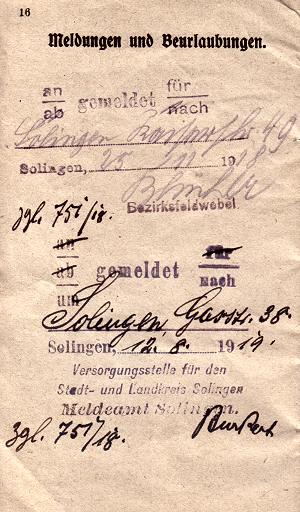 16
Meldungen und Beurlaubungen.
an für
ab gemeldet nach
Solingen Kaiserstr. 49.
Solingen, 25 / 11 1918
Bezirksfeldwebel
Zgl. 751/18.
an für
ab gemeldet nach
um
Solingen, 38.
Solingen, 12. 8. 1919.
Versorgungsstelle für den
Stadt- und Landkreis Solingen
Meldeamt Solingen.
Zgl. 751/18.